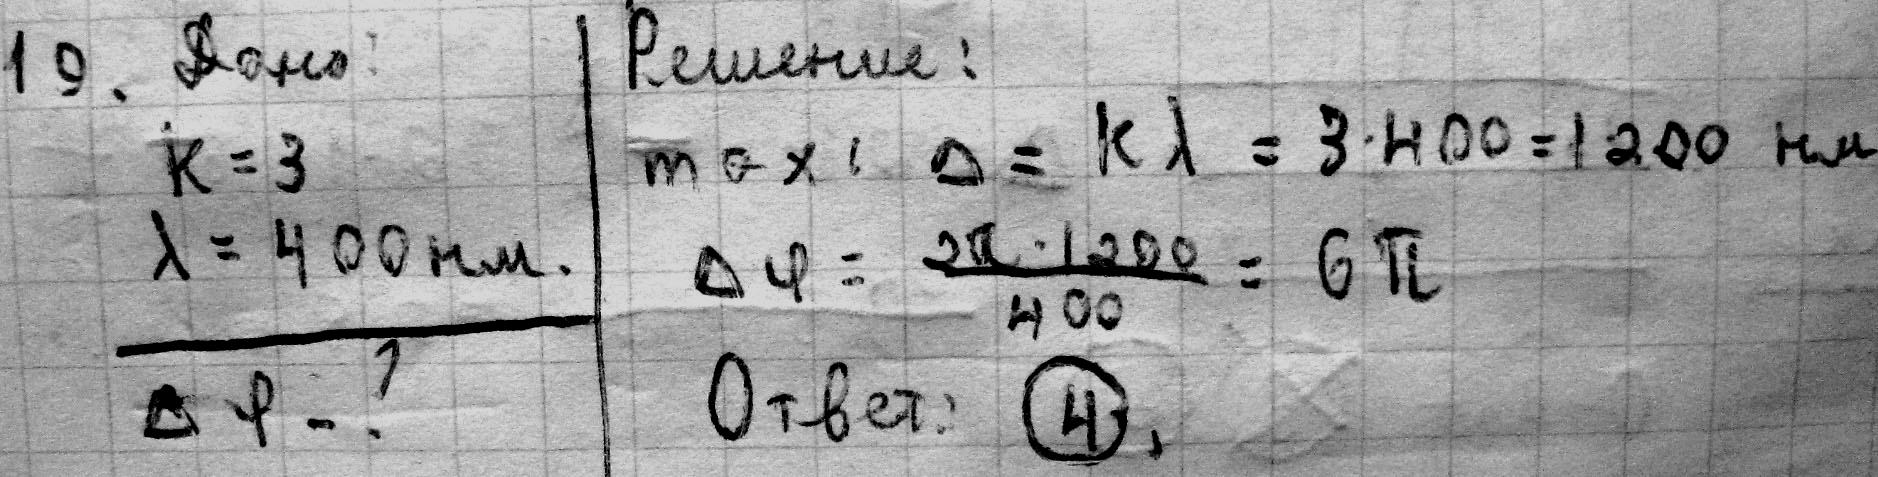 19. Дано:
k = 3
λ = 400 нм.
Δφ - ?
Решение:
max: Δ = kλ = 3·400 = 1200 нм
Δφ = 2π·1200 / 400 = 6π
Ответ: 4.